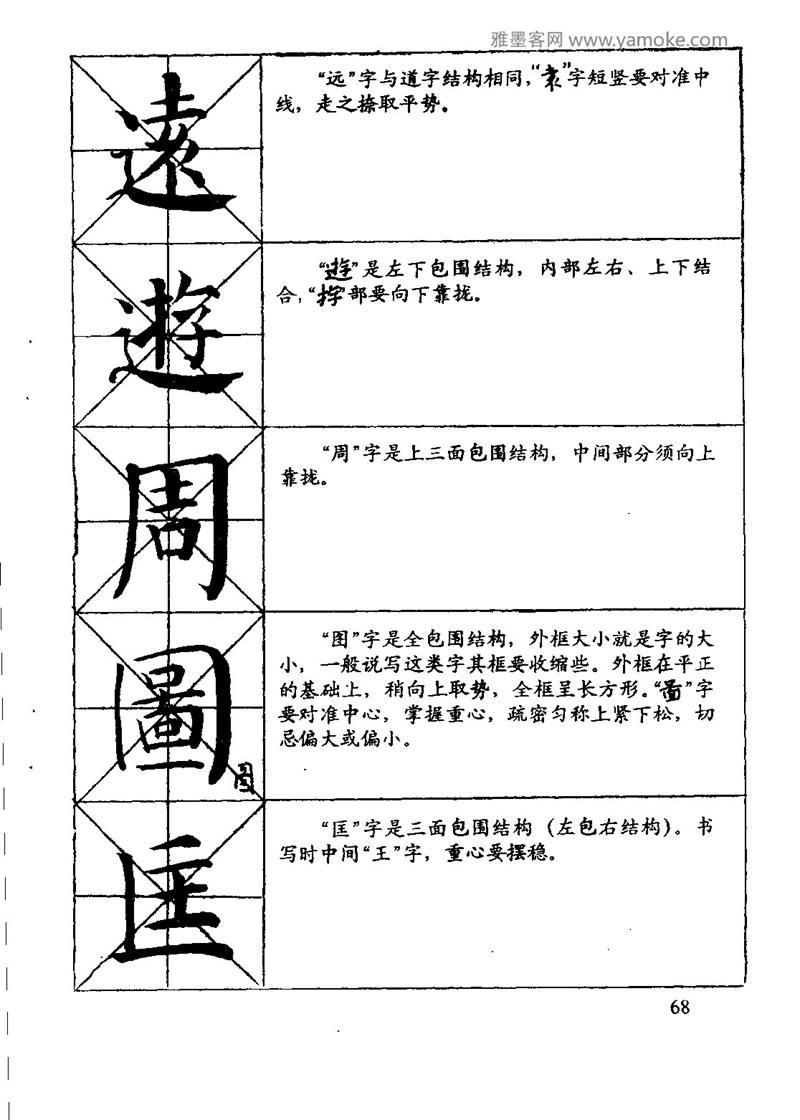 雅墨客网 www.yamoke.com
遠
“远”字与道字结构相同，“袁”字短竖要对准中
线，走之捺取平势。
遊
“遊”是左下包围结构，内部左右、上下结
合，“斿”部要向下靠拢。
周
“周”字是上三面包围结构，中间部分须向上
靠拢。
圖
“图”字是全包围结构，外框大小就是字的大
小，一般说写这类字其框要收缩些。外框在平正
的基础上，稍向上取势，全框呈长方形。“啚”字
要对准中心，掌握重心，疏密匀称上紧下松，切
忌偏大或偏小。
匡
“匡”字是三面包围结构（左包右结构）。书
写时中间“王”字，重心要摆稳。
68